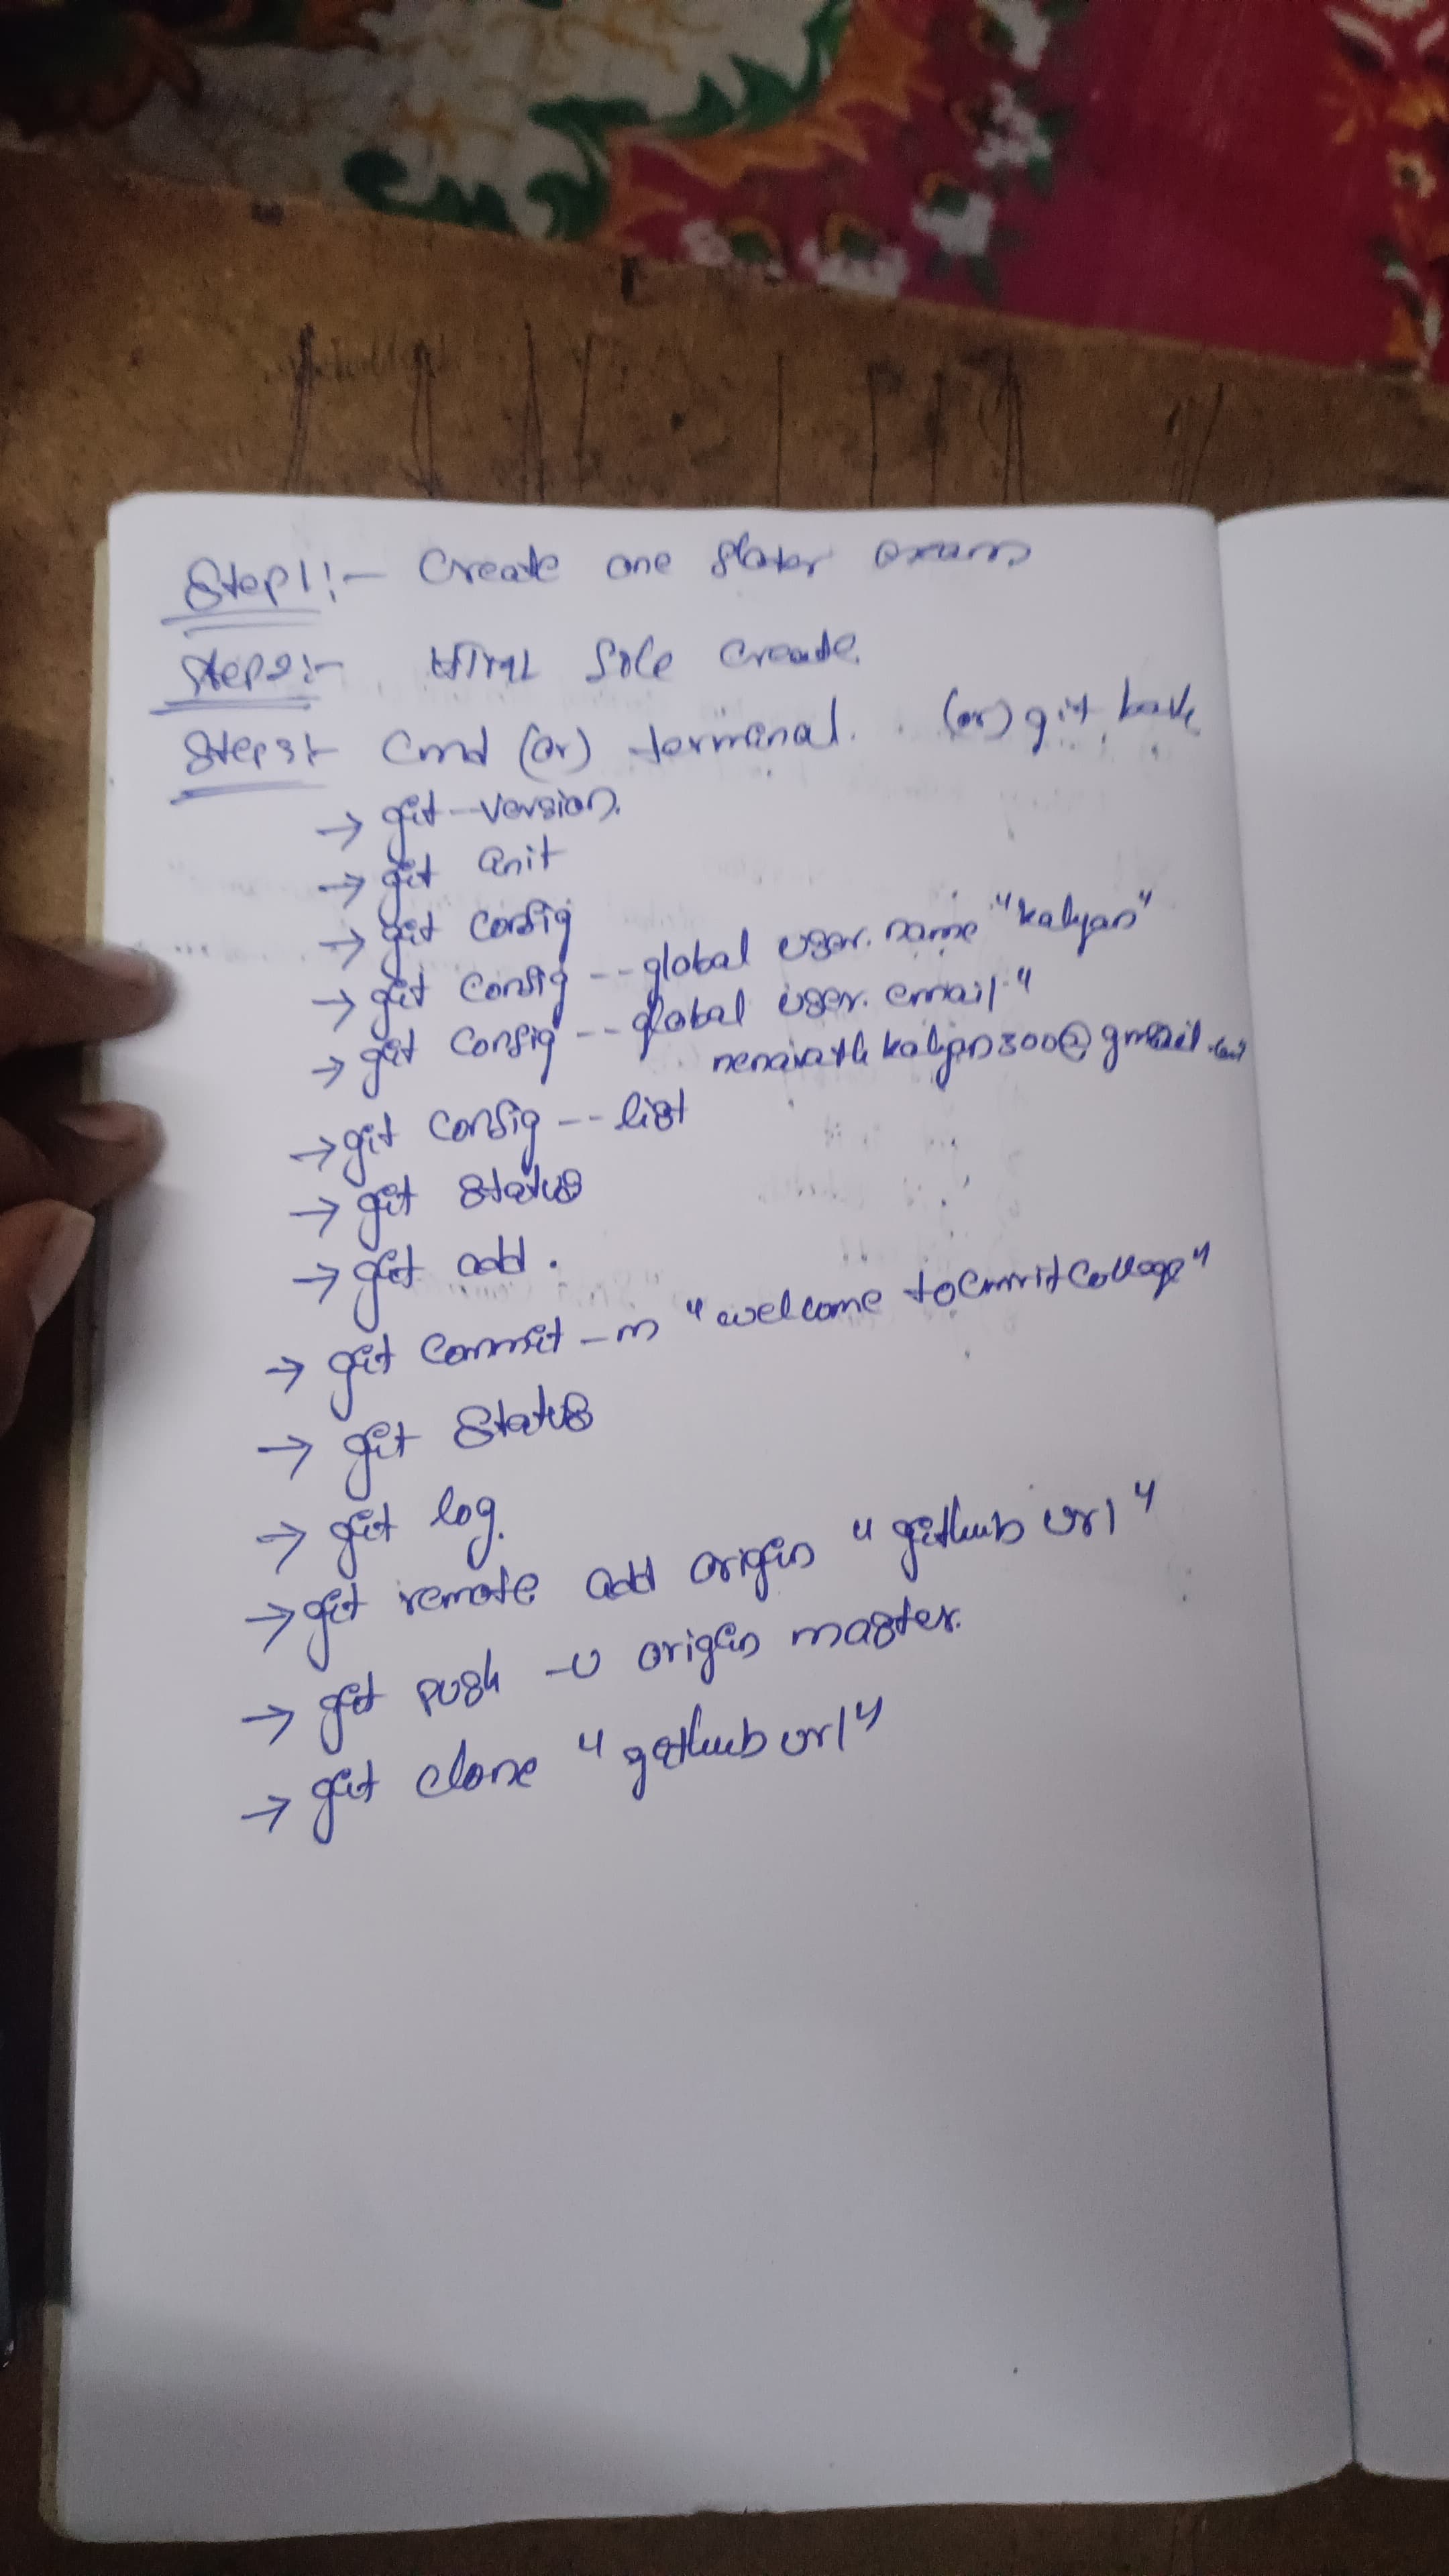 Step1:- Create one folder exam
Step2:- HTML file create
Step3:- Cmd (or) terminal. (or) git bash
→ git --version.
→ git init
→ git config
→ git config --global user.name "kalyan"
→ git config --global user.email "
nenavath kalyan300@gmail.com
→ git config --list
→ git status
→ git add .
→ git commit -m "welcome to cmrit college"
→ git status
→ git log.
→ git remote add origin "github url"
→ git push -u origin master.
→ git clone "github url"